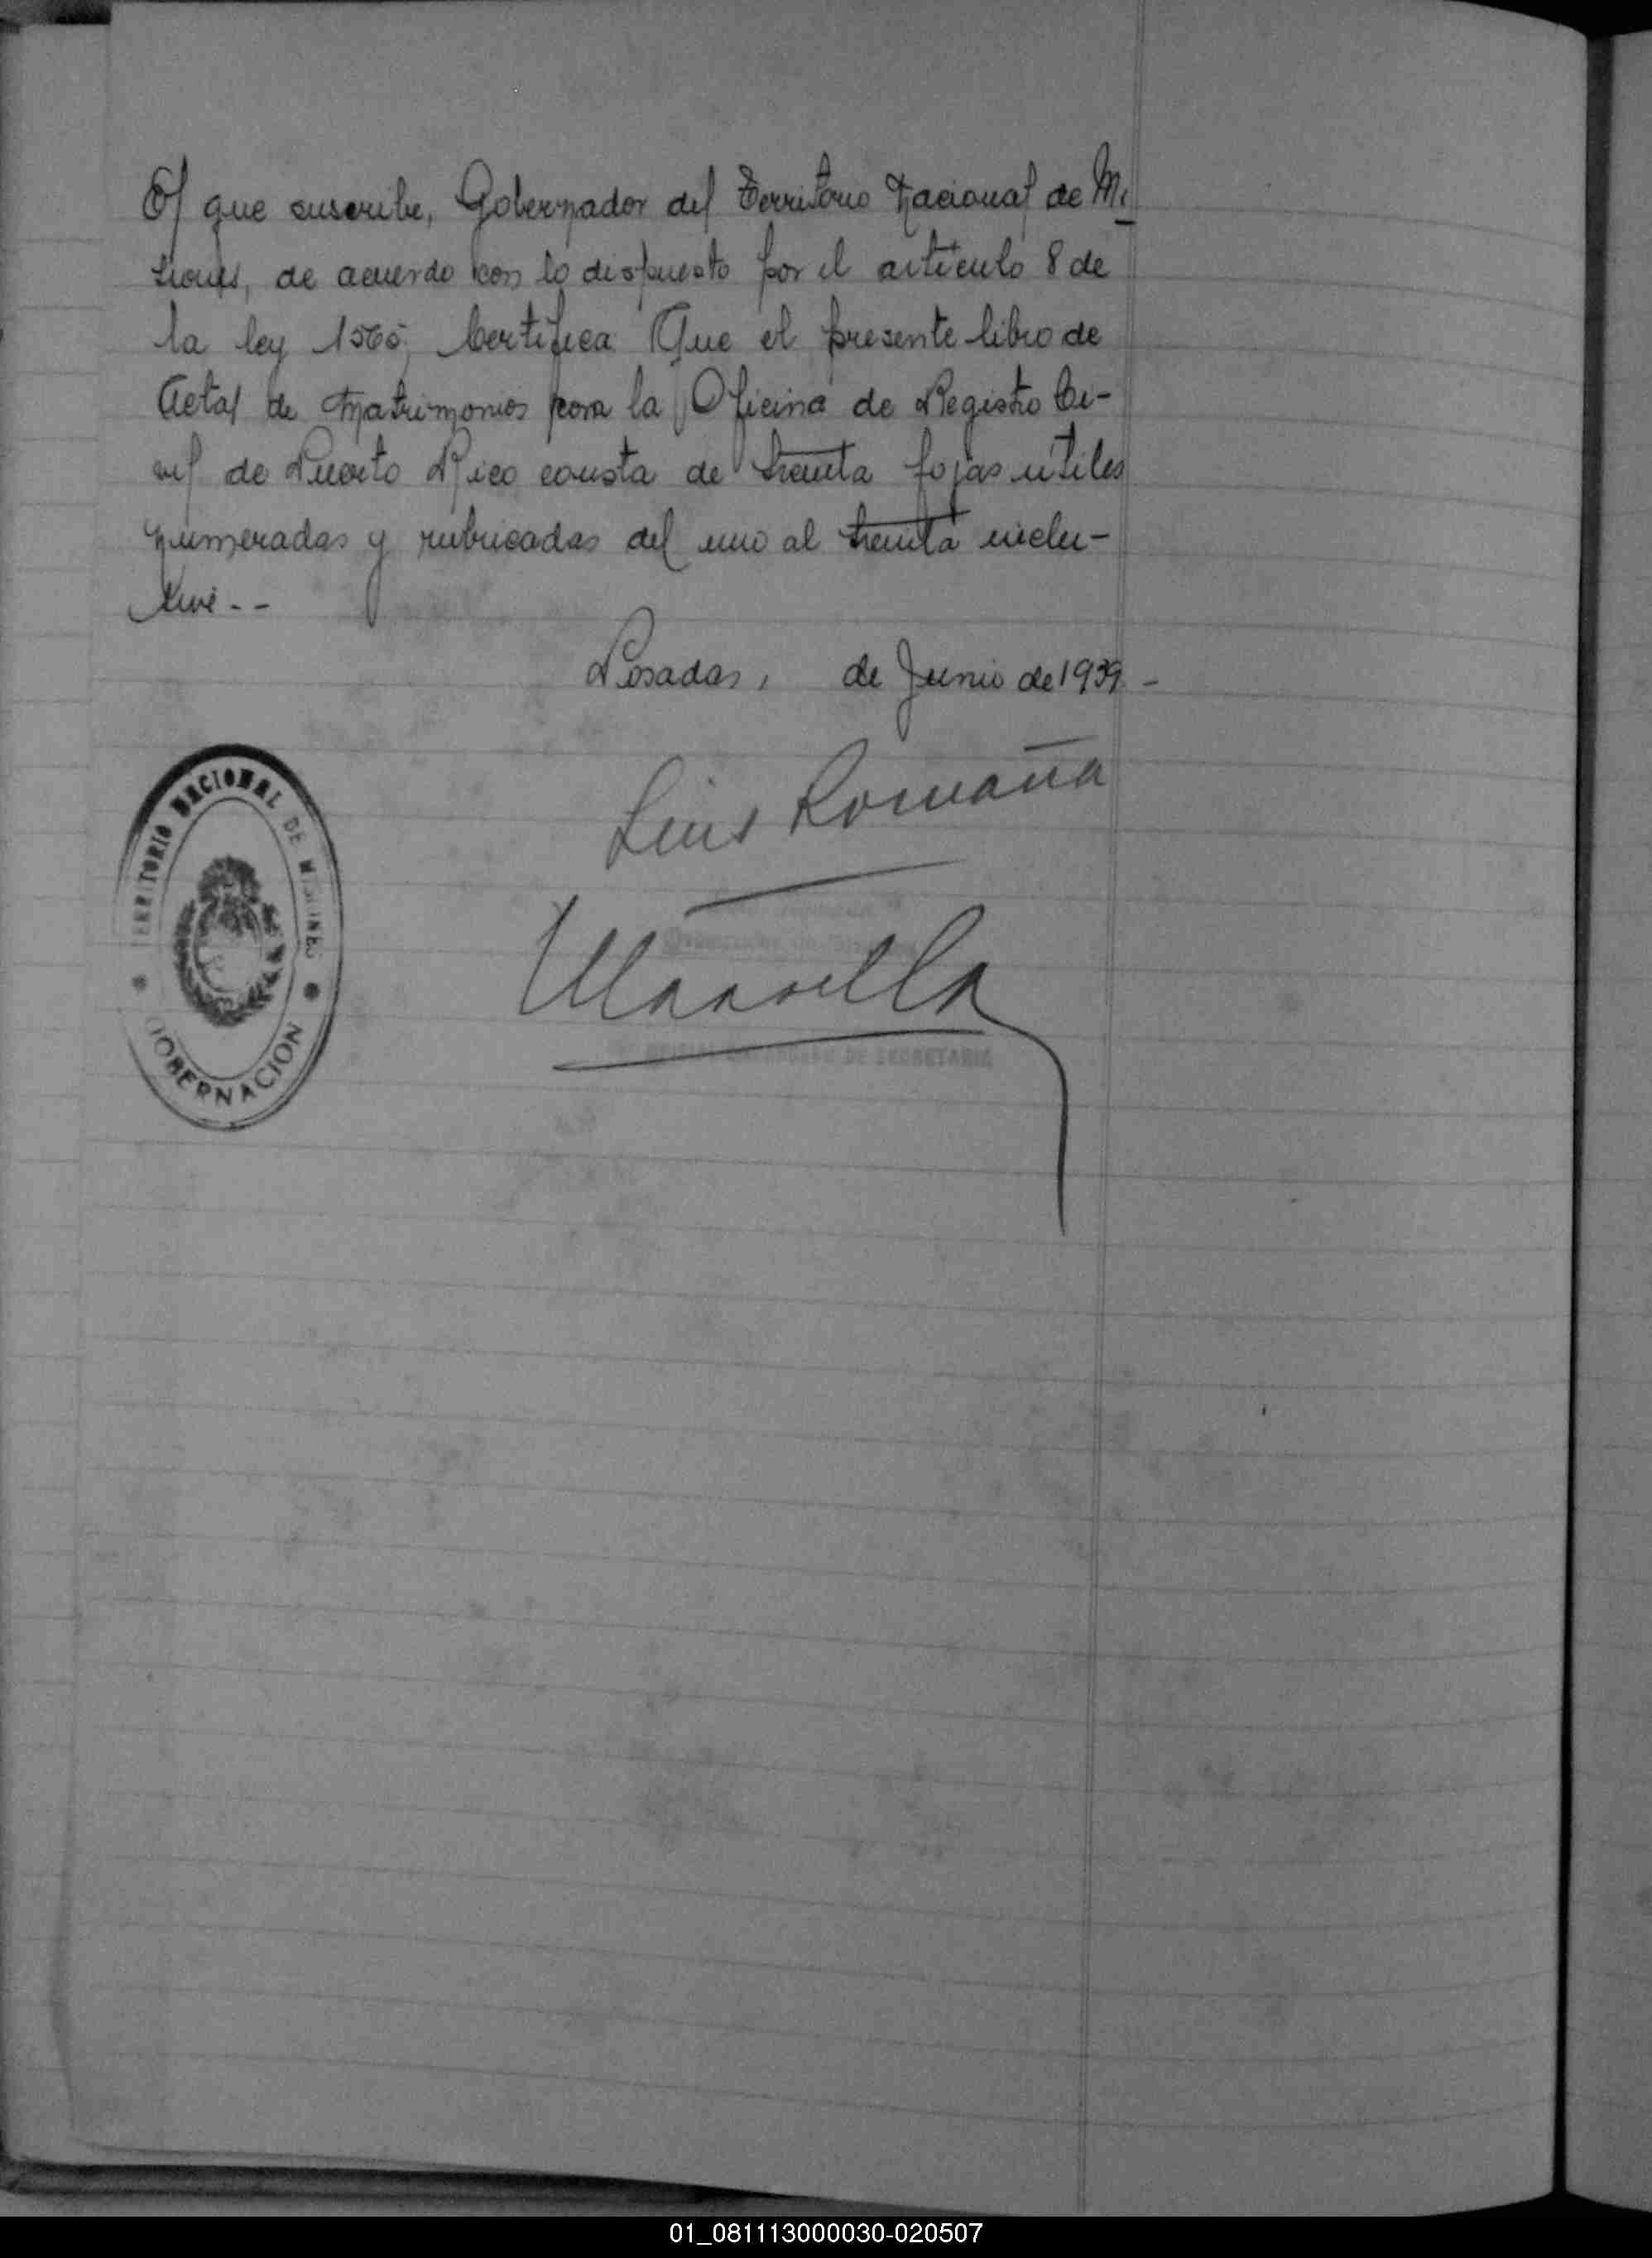 El que suscribe, Gobernador del Territorio Nacional de Mi
siones, de acuerdo con lo dispuesto por el artículo 8 de
la ley 1565, Certifica: Que el presente libro de
Actas de Matrimonios para la Oficina de Registro Ci-
vil de Puerto Rico consta de treinta fojas útiles
numeradas y rubricadas del uno al treinta inclu-
sive.--
Posadas, de Junio de 1939-
Luis Romaña
TERRITORIO NACIONAL DE MISIONES
GOBERNACION
Mansilla
OFICIAL ENCARGADO DE SECRETARIA
01_081113000030-020507